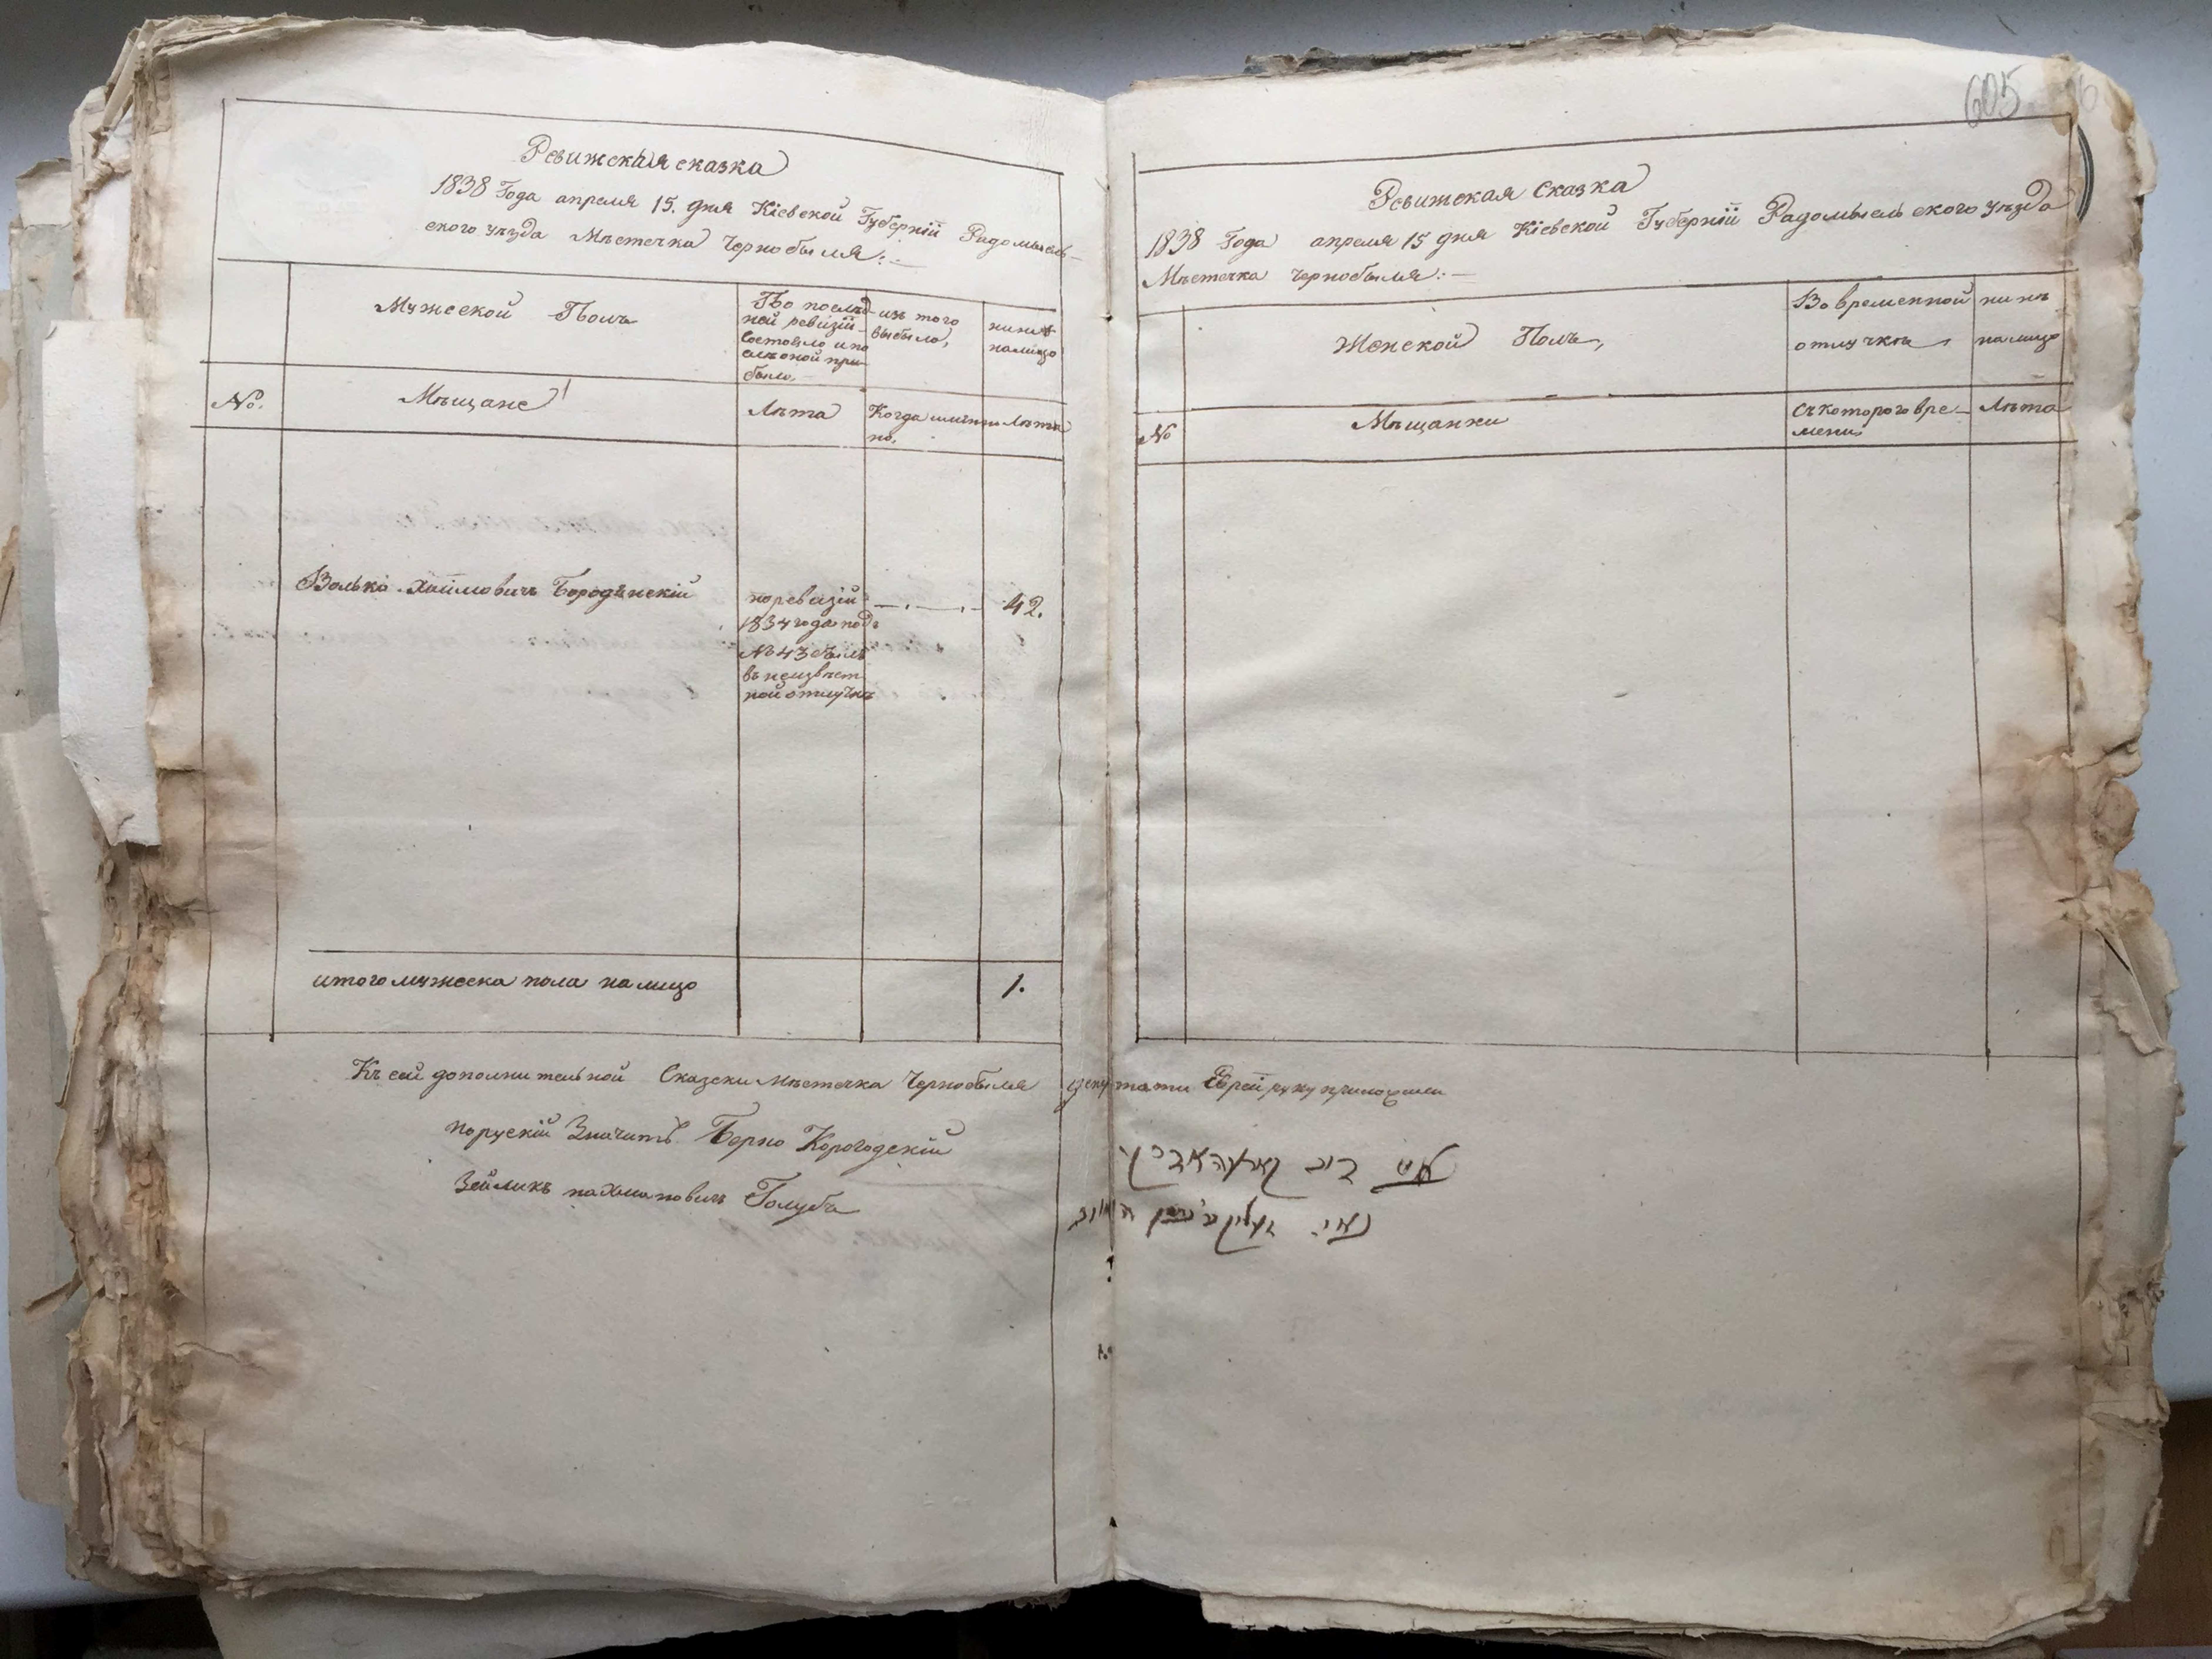 Ревижская сказка
1838 Года апреля 15. дня Кіевской Губерніи Радомысль-
ского уѣзда Мѣстечка Чернобыля:—
Мужеской Полъ
По послѣд-
ней ревизіи
состояло и по
слѣ оной при-
было,
изъ того
выбыло,
нинѣ
налицо
№.
Мѣщане
Лѣта
Когда имян-
но,
Лѣта
Волько Хаимовичъ Бородянскій
по ревизіи
1834 года подъ
№ 43 былъ
въ неизвѣст
ной отлучкѣ
42.
итого мужеска пола на лицо
1.
Къ сей дополнительной Сказски мѣстечка Чернобыля депутати Еврей руку приложили
по рускій Значитъ Берко Корогодскій
Зейликъ нахмановичъ Голубъ
605
Ревижская Сказка
1838 Года апреля 15 дня Кіевской Губерніи Радомысльского уѣзда
Мѣстечка Чернобыля:—
Женской Полъ,
Во временной
отлучкѣ,
нинѣ
налицо
№
Мѣщанки
съ которого вре-
мени
Лѣта